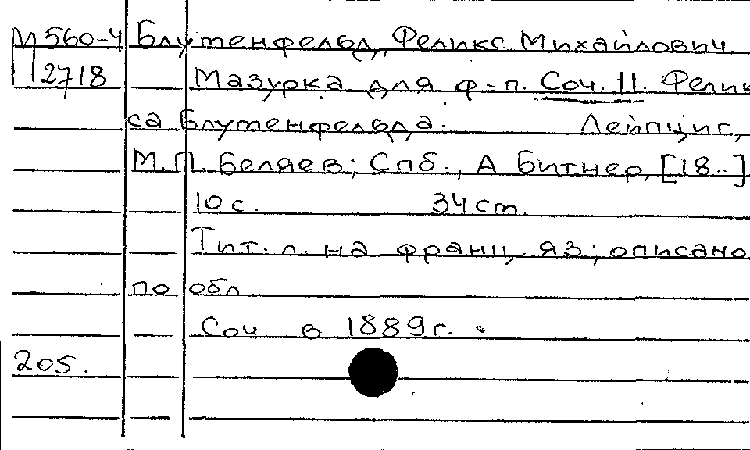 М 560-4 Блуменфельд, Феликс Михайлович
П 2718 Мазурка для ф-п. Соч. 11. Феликса
са Блуменфельда. Лейпциг,
М.П. Беляев; Спб., А Битнер, [18..]
10 с. 34 cm.
Тит. л. на франц. яз; описано
по обл
Соч в 1889 г.
205.